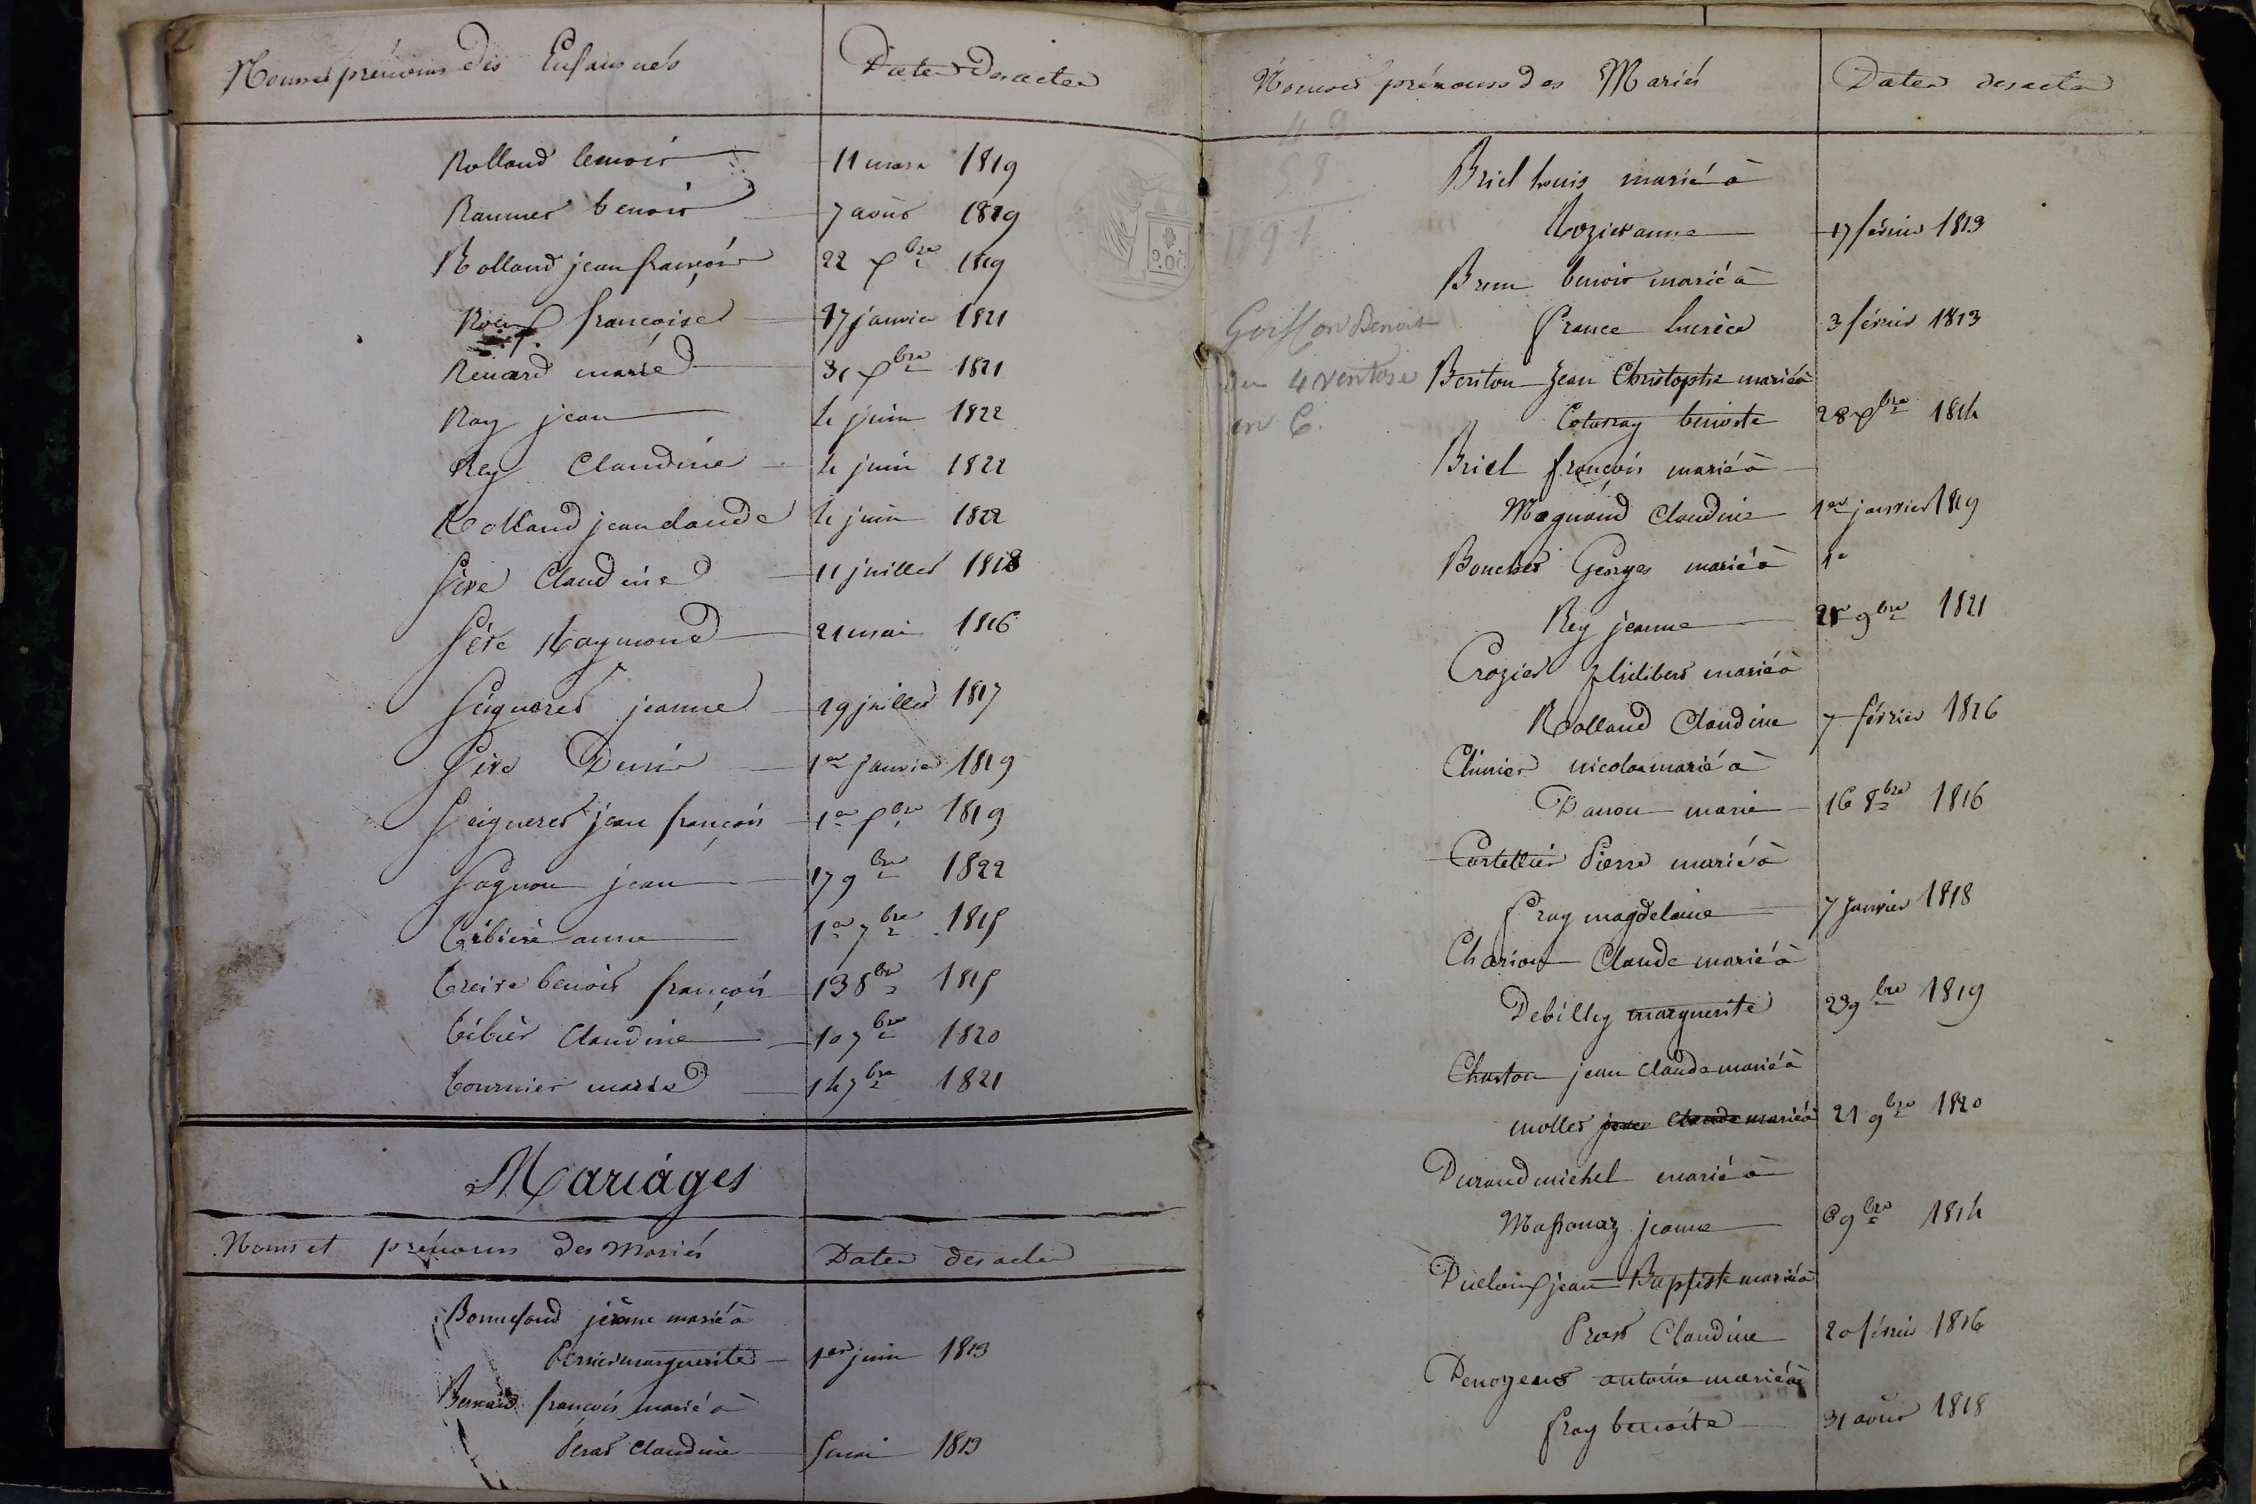 Noms et prénoms des Enfans nés Dates des actes
Rolland benoit 11 mars 1819
Ranner benoit 7 août 1819
Rolland jean françois 22 Xbre 1819
Roux françoise 17 janvier 1821
Renard marie 31 Xbre 1821
Ray jean 4 juin 1822
Rey Claudine 4 juin 1822
Rolland jean claude 4 juin 1822
Sève Claudine 11 juillet 1813
Sève Raymond 21 mai 1816
Seigneret jeanne 29 juillet 1817
Sève Denis 1er janvier 1819
Seigneret jean françois 1er Xbre 1819
Sagnon jean 17 9bre 1822
anne 1er 7bre 1815
benoit françois 13 8bre 1815
Tébier Claudine 10 7bre 1820
Tournier marie 14 7bre 1821
Mariages
Noms et prénoms des Mariés Dates des actes
Bonnefond jérôme marié à
marguerite 1er juin 1813
Bernard françois marié à
Péras Claudine 5 mai 1813
Noms et prénoms des Mariés Dates des actes
49
58
1791
Briel Louis marié à
Rozier anne 17 février 1813
Brun benoit marié à
france Lucrèce 3 février 1813
Goiffon Benoit
4 ventose
an 6.
Beriton Jean Christophe marié à
benoite 28 Xbre 1814
Briel françois marié à
Magnand Claudine 1er janvier 1819
Bouchet Georges marié à 1e
Rey jeanne 21 9bre 1821
Crozier philibert marié à
Rolland Claudine 7 février 1816
nicolas marié à
Danon marie 16 8bre 1816
Cartellier Pierre marié à
fray magdelaine 7 janvier 1818
Charion Claude marié à
Debilly marguerite 23 9bre 1819
Charton jean Claude marié à
mollet jean Claude marié à 21 9bre 1820
Durand michel marié à
Massonay jeanne 6 9bre 1814
Ducloux jean Baptiste marié à
Prost Claudine 20 février 1816
Denoyeux antoine marié à
fray benoite 31 août 1818